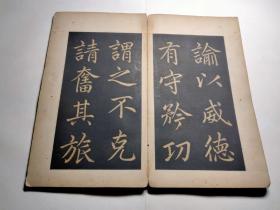 諭以威德
有守矜功
謂之不克
請奮其旅